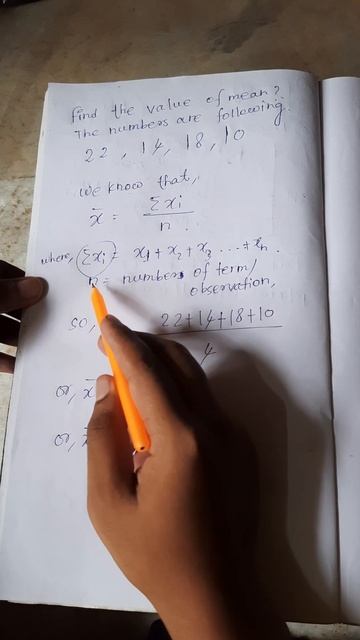 find the value of mean?
The numbers are following.
22, 14, 18, 10
we know that,
x̄ = Σxi / n.
where, Σxi = x1 + x2 + x3 ... + xn.
n = numbers of term/
observation,
so, 22+14+18+10
4
or, x̄
or, x̄